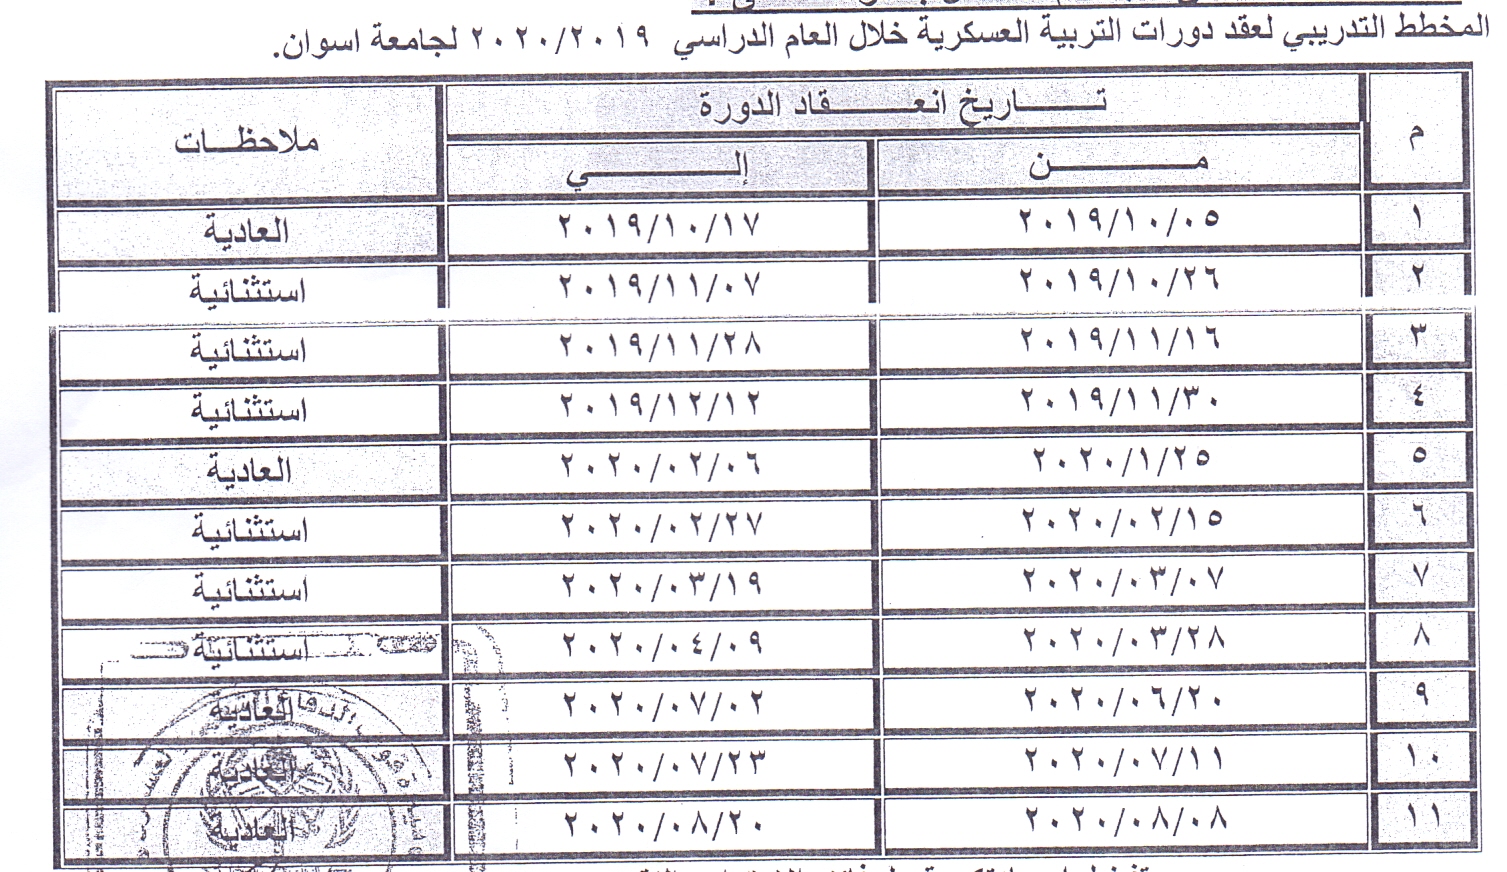 المخطط التدريبي لعقد دورات التربية العسكرية خلال العام الدراسي ٢٠٢٠/٢٠١٩ لجامعة اسوان.
م تـــاريخ انعـــقاد الدورة ملاحظـــات
مـــــن إلـــــي
١ ٢٠١٩/١٠/٠٥ ٢٠١٩/١٠/١٧ العادية
٢ ٢٠١٩/١٠/٢٦ ٢٠١٩/١١/٠٧ استثنائية
٣ ٢٠١٩/١١/١٦ ٢٠١٩/١١/٢٨ استثنائية
٤ ٢٠١٩/١١/٣٠ ٢٠١٩/١٢/١٢ استثنائية
٥ ٢٠٢٠/١/٢٥ ٢٠٢٠/٠٢/٠٦ العادية
٦ ٢٠٢٠/٠٢/١٥ ٢٠٢٠/٠٢/٢٧ استثنائية
٧ ٢٠٢٠/٠٣/٠٧ ٢٠٢٠/٠٣/١٩ استثنائية
٨ ٢٠٢٠/٠٣/٢٨ ٢٠٢٠/٠٤/٠٩ استثنائية
٩ ٢٠٢٠/٠٦/٢٠ ٢٠٢٠/٠٧/٠٢ العادية
١٠ ٢٠٢٠/٠٧/١١ ٢٠٢٠/٠٧/٢٣ العادية
١١ ٢٠٢٠/٠٨/٠٨ ٢٠٢٠/٠٨/٢٠ العادية